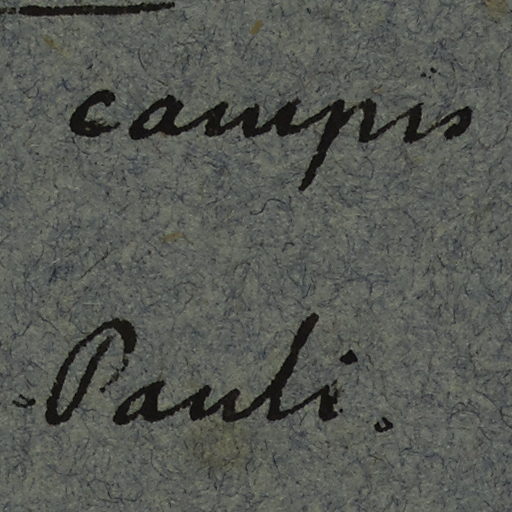 campis
-Pauli.